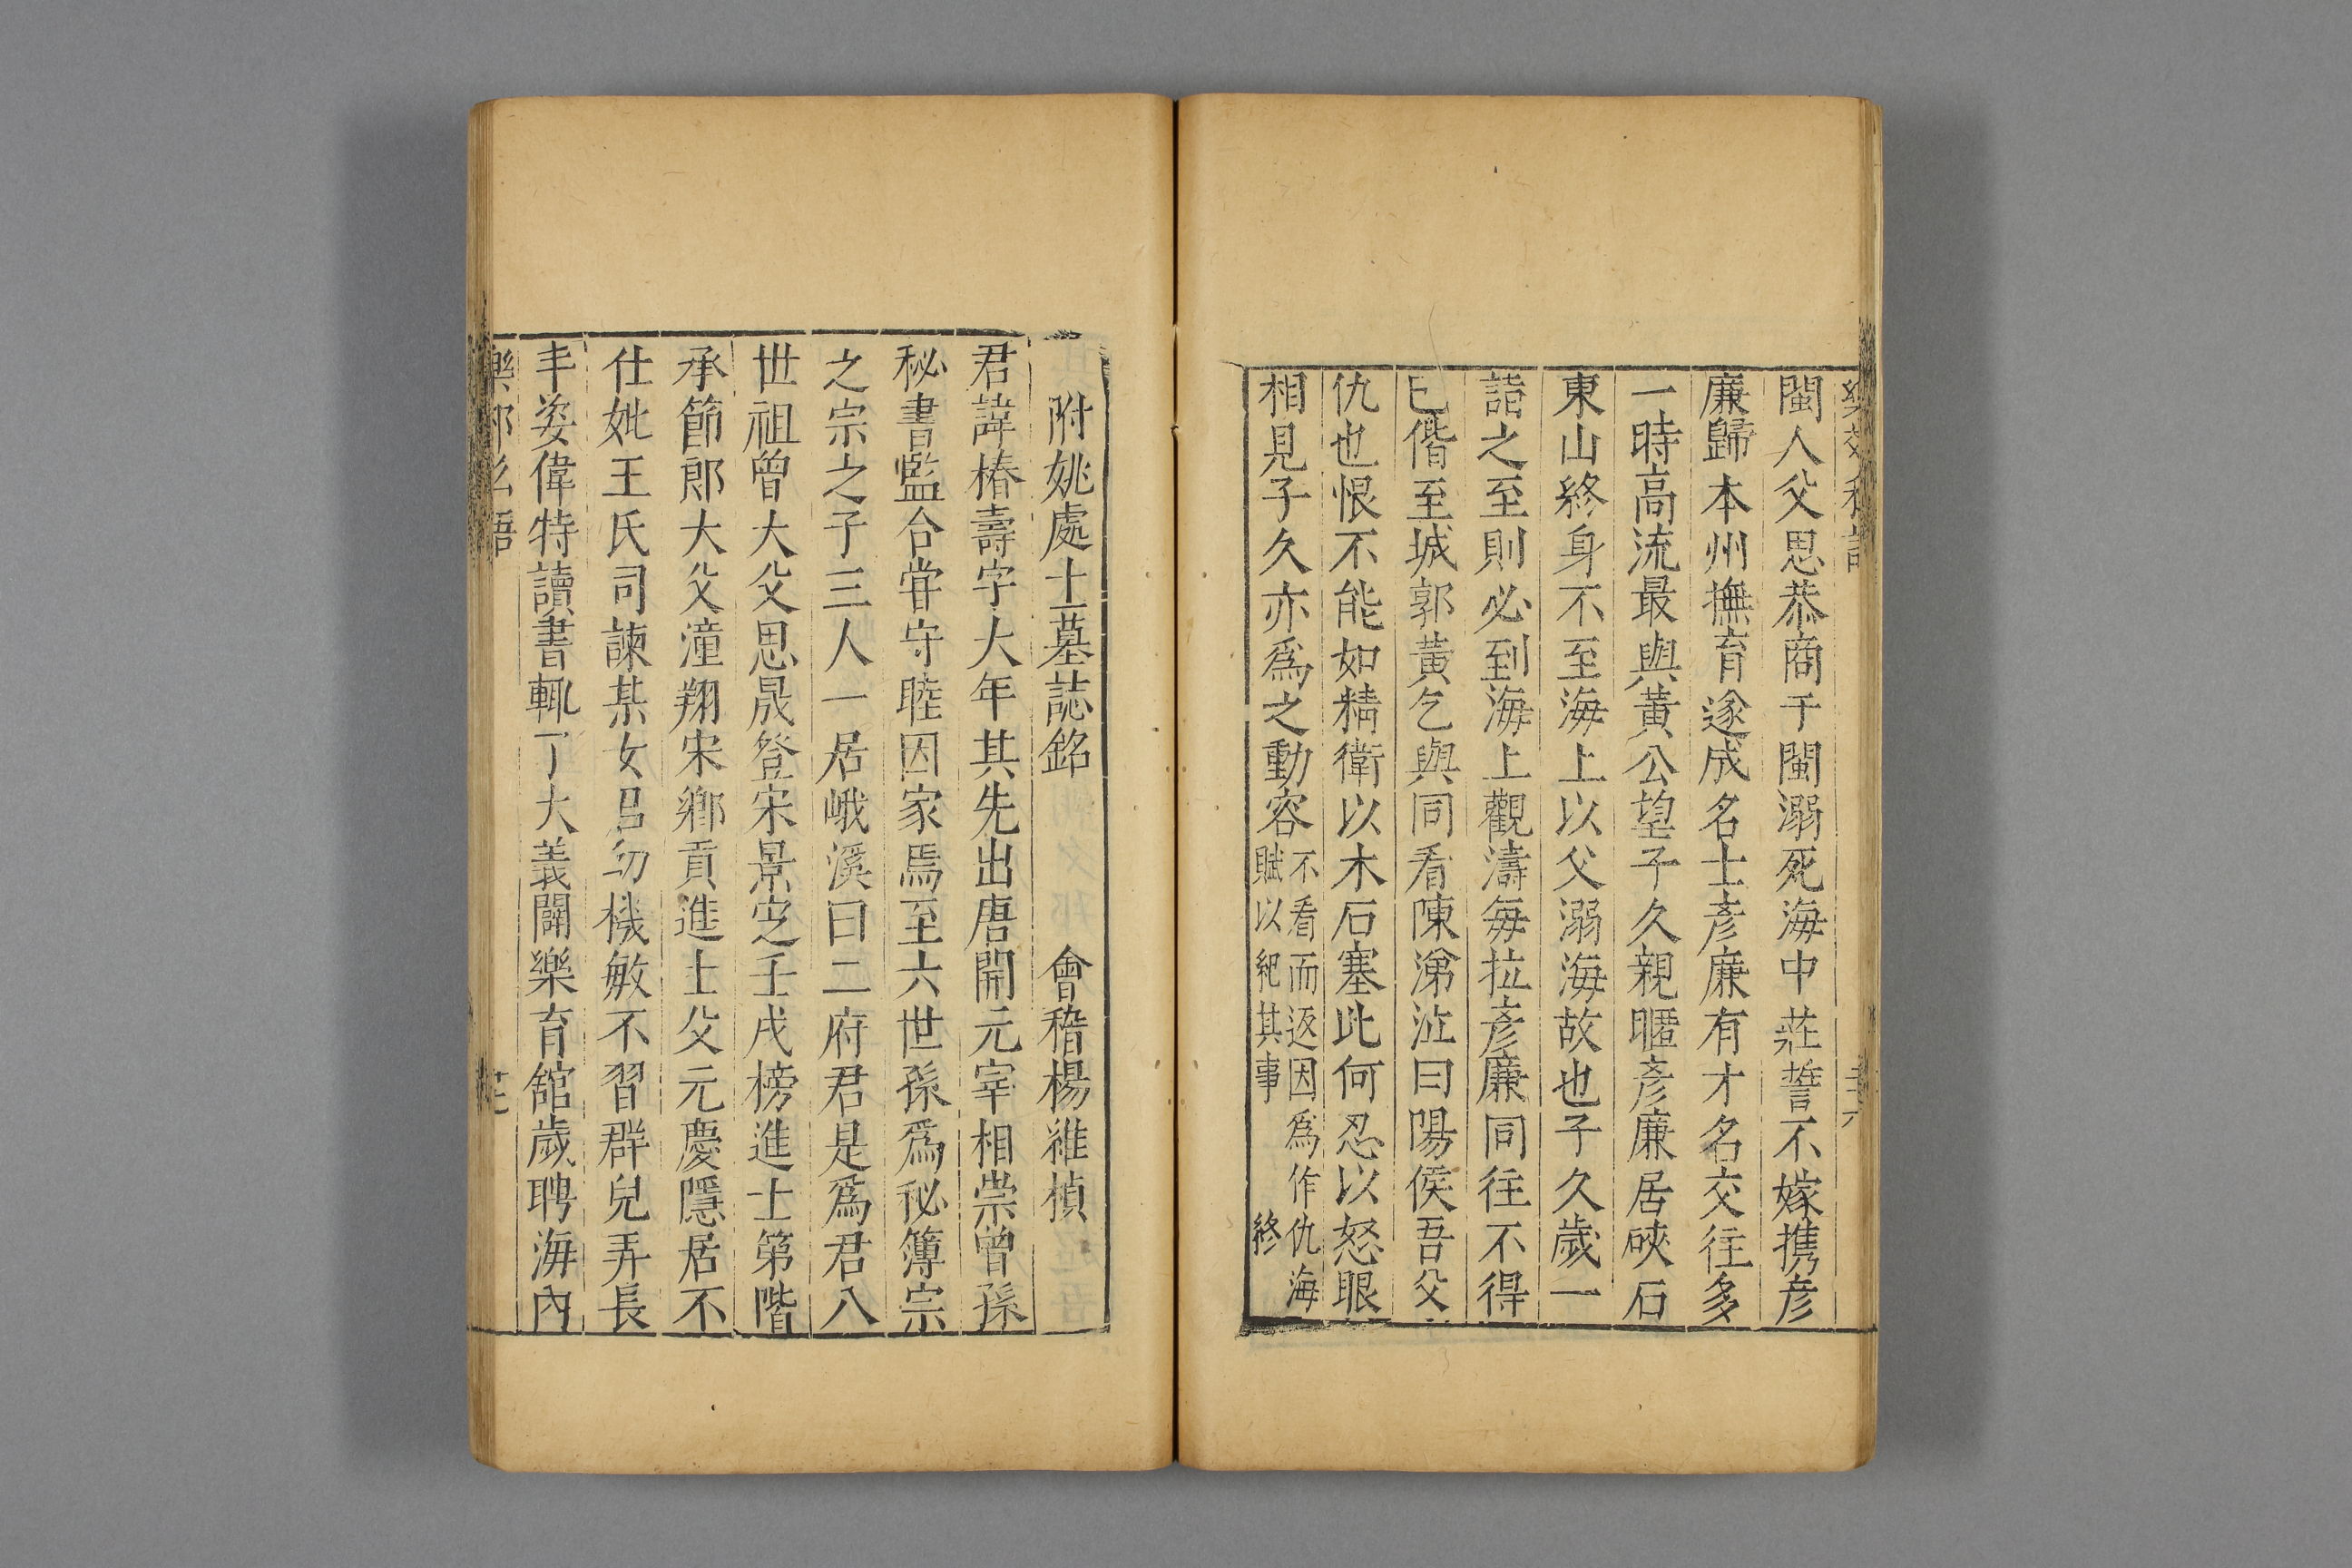 閩人父思恭商于閩溺死海中莊誓不嫁攜彥
廉歸本州撫育遂成名士彥廉有才名交往多
一時高流最與黃公望子久親暱彥廉居硤石
東山終身不至海上以父溺海故也子久歲一
詣之至則必到海上觀濤每拉彥廉同往不得
已偕至城郭黃乞與同看陳涕泣曰陽侯吾父
仇也恨不能如精衛以木石塞此何忍以怒眼
相見子久亦爲之動容不看而返因爲作仇海
賦以紀其事 終
附姚處士墓誌銘 會稽楊維楨
君諱椿壽字大年其先出唐開元宰相崇曾孫
秘書監合甞守睦因家焉至六世孫爲秘簿宗
之宗之子三人一居峨溪曰二府君是爲君八
世祖曾大父思晟登宋景定壬戌榜進士第階
承節郎大父潼翔宋鄉貢進士父元慶隱居不
仕妣王氏司諫某女君幼機敏不習群兒弄長
丰姿偉特讀書輒了大義闢樂育舘歲聘海內